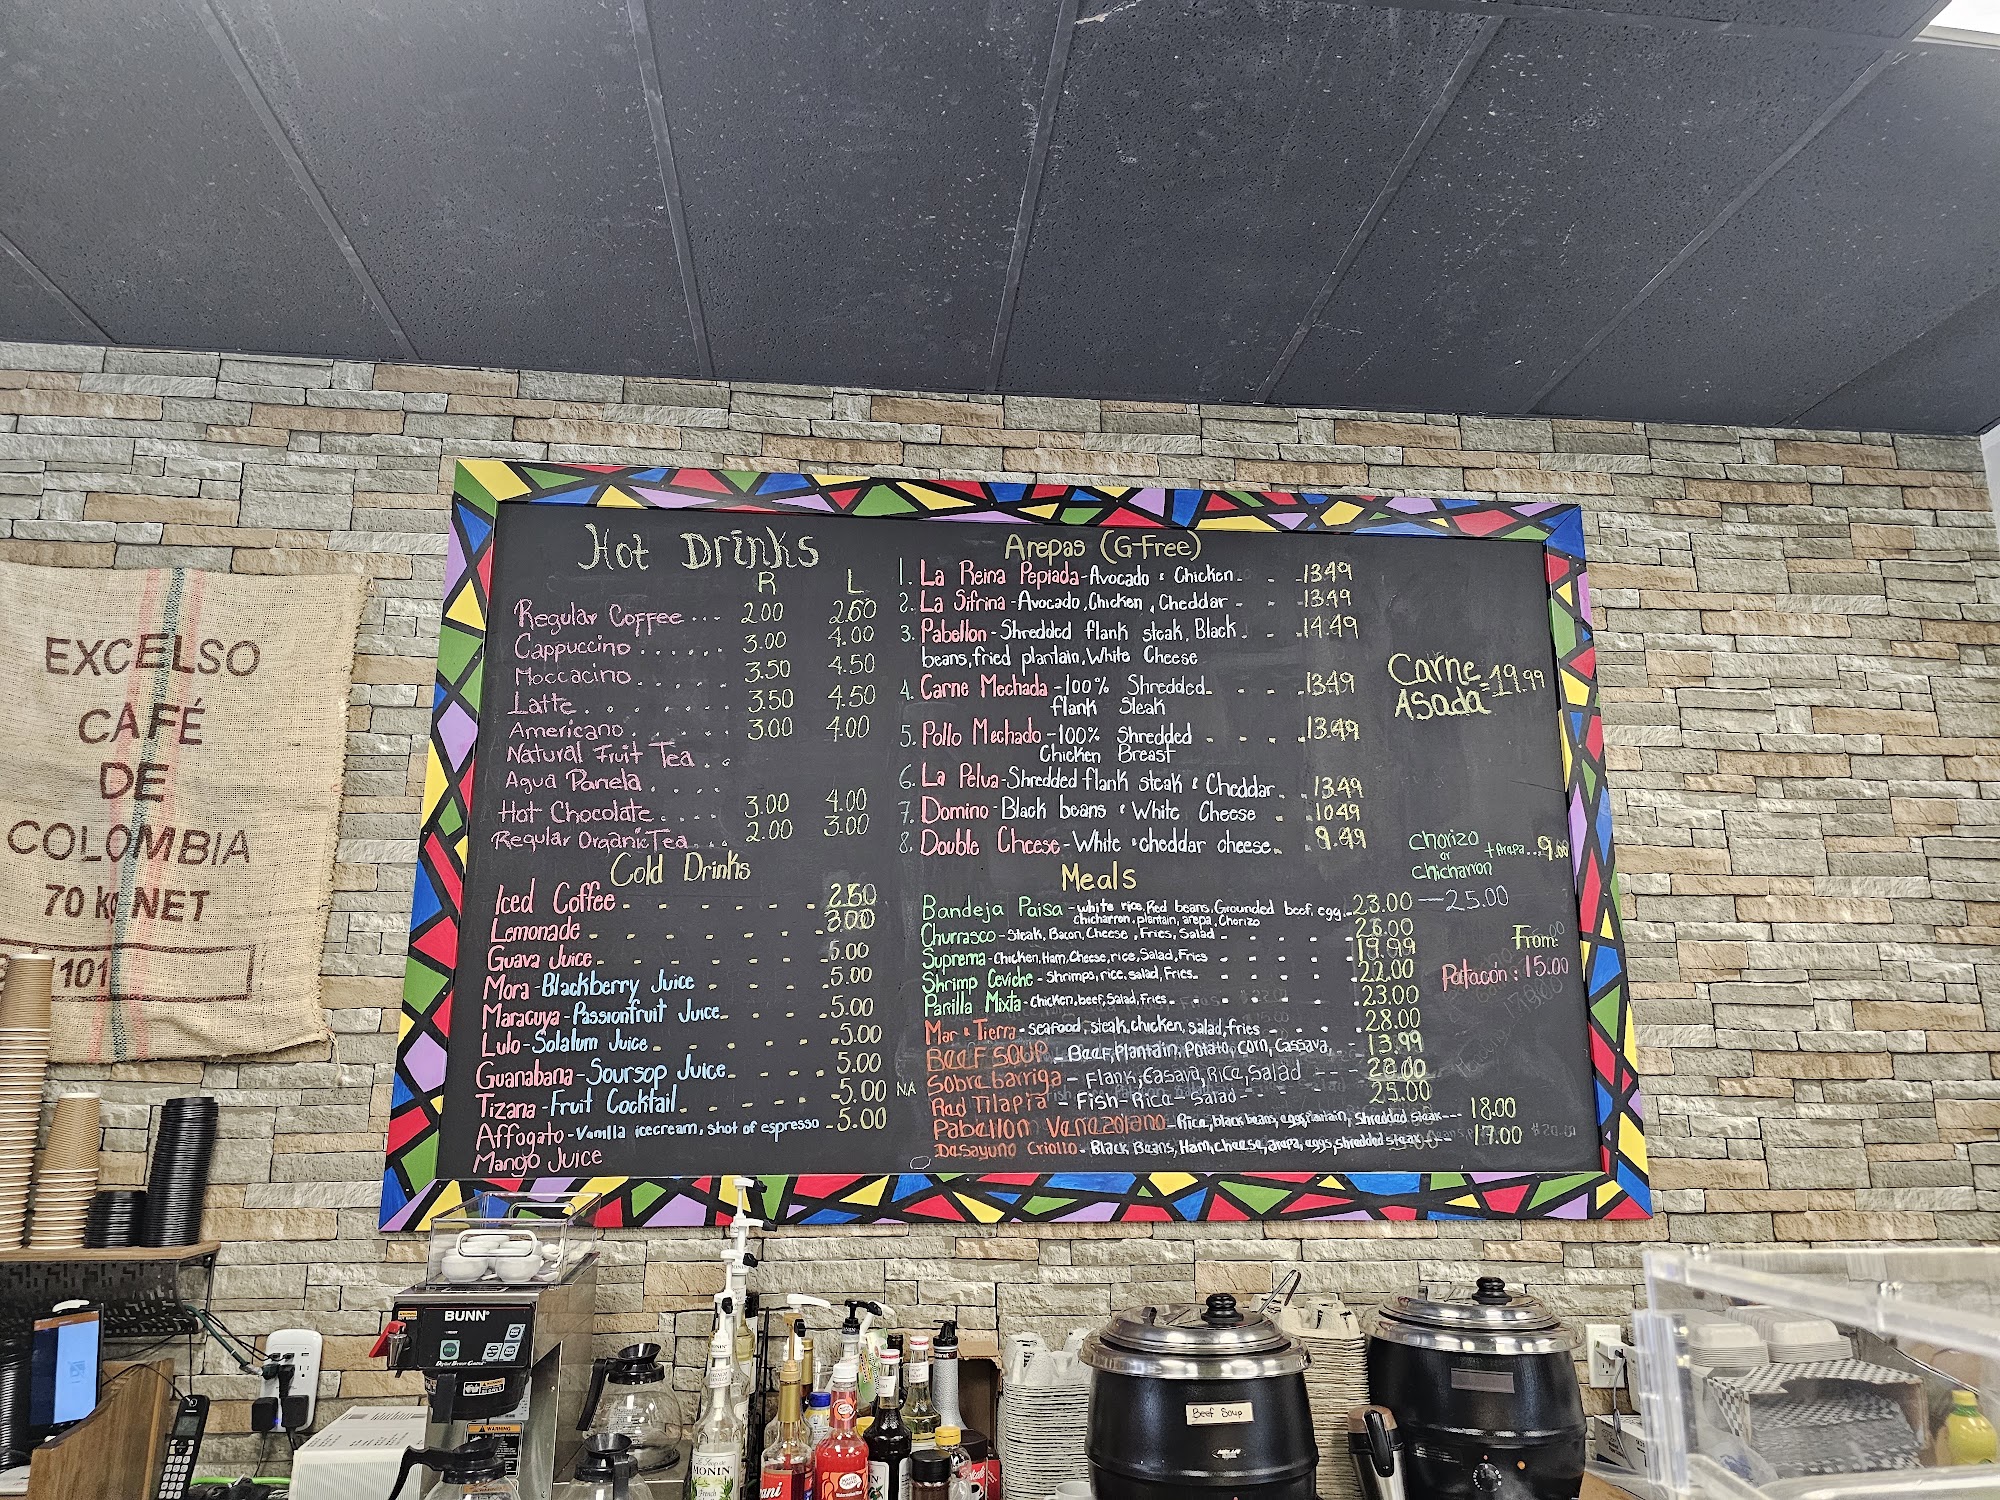 EXCELSO
CAFÉ
DE
COLOMBIA
70 kg NET
101
Hot Drinks
R L
Regular Coffee ... 2.00 2.60
Cappuccino ...... 3.00 4.00
Moccacino ..... 3.50 4.50
Latte ..... 3.50 4.50
Americano ..... 3.00 4.00
Natural Fruit Tea ..
Agua Panela ....
Hot Chocolate .... 3.00 4.00
Regular Organic Tea ... 2.00 3.00
Cold Drinks
Iced Coffee - - - - - - 2.50
Lemonade - - - - - - - 3.00
Guava Juice - - - - - - 5.00
Mora - Blackberry Juice - - - - 5.00
Maracuya - Passionfruit Juice - - - - 5.00
Lulo - Solalum Juice - - - - - 5.00
Guanabana - Soursop Juice - - - - 5.00
Tizana - Fruit Cocktail - - - - - 5.00 NA
Affogato - Vanilla icecream, shot of espresso - 5.00
Mango Juice
Arepas (G-Free)
1. La Reina Pepiada - Avocado & Chicken - - - 13.49
2. La Sifrina - Avocado, Chicken, Cheddar - - - 13.49
3. Pabellon - Shredded flank steak, Black - - - 14.49
beans, fried plantain, White Cheese
4. Carne Mechada - 100% Shredded - - - 13.49
flank Steak
5. Pollo Mechado - 100% Shredded - - - - 13.49
Chicken Breast
6. La Pelua - Shredded flank steak & Cheddar - - 13.49
7. Domino - Black beans & White Cheese - - 10.49
8. Double Cheese - White & cheddar cheese - - 9.49
Carne
Asada = 19.99
Chorizo
or + Arepa ... 9.00
chicharron
Meals
Bandeja Paisa - white rice, Red beans, Grounded beef, egg, 23.00 — 25.00
chicharron, plantain, arepa, Chorizo
Churrasco - Steak, Bacon, Cheese, Fries, Salad - - - - 26.00
Suprema - Chicken, Ham, Cheese, rice, Salad, Fries - - - - 19.99
Shrimp Ceviche - Shrimps, rice, salad, Fries - - - - 22.00
Parilla Mixta - chicken, beef, Salad, fries - - - - 23.00
Mar & Tierra - seafood, steak, chicken, salad, fries - - - - 28.00
Beef Soup - Beef, Plantain, Potato, Corn, Cassava, - 13.99
Sobrebarriga - Flank, Casava, Rice, Salad --- - 28.00
Red Tilapia - Fish - Rice - Salad - - - 25.00
Pabellon Venezolano - Rice, black beans, egg, plantain, Shredded steak --- 18.00
Desayuno Criollo - Black Beans, Ham, cheese, arepa, eggs, shredded steak --- 17.00
From:
Patacón: 15.00
BUNN
WARNING
MONIN
Beef Soup